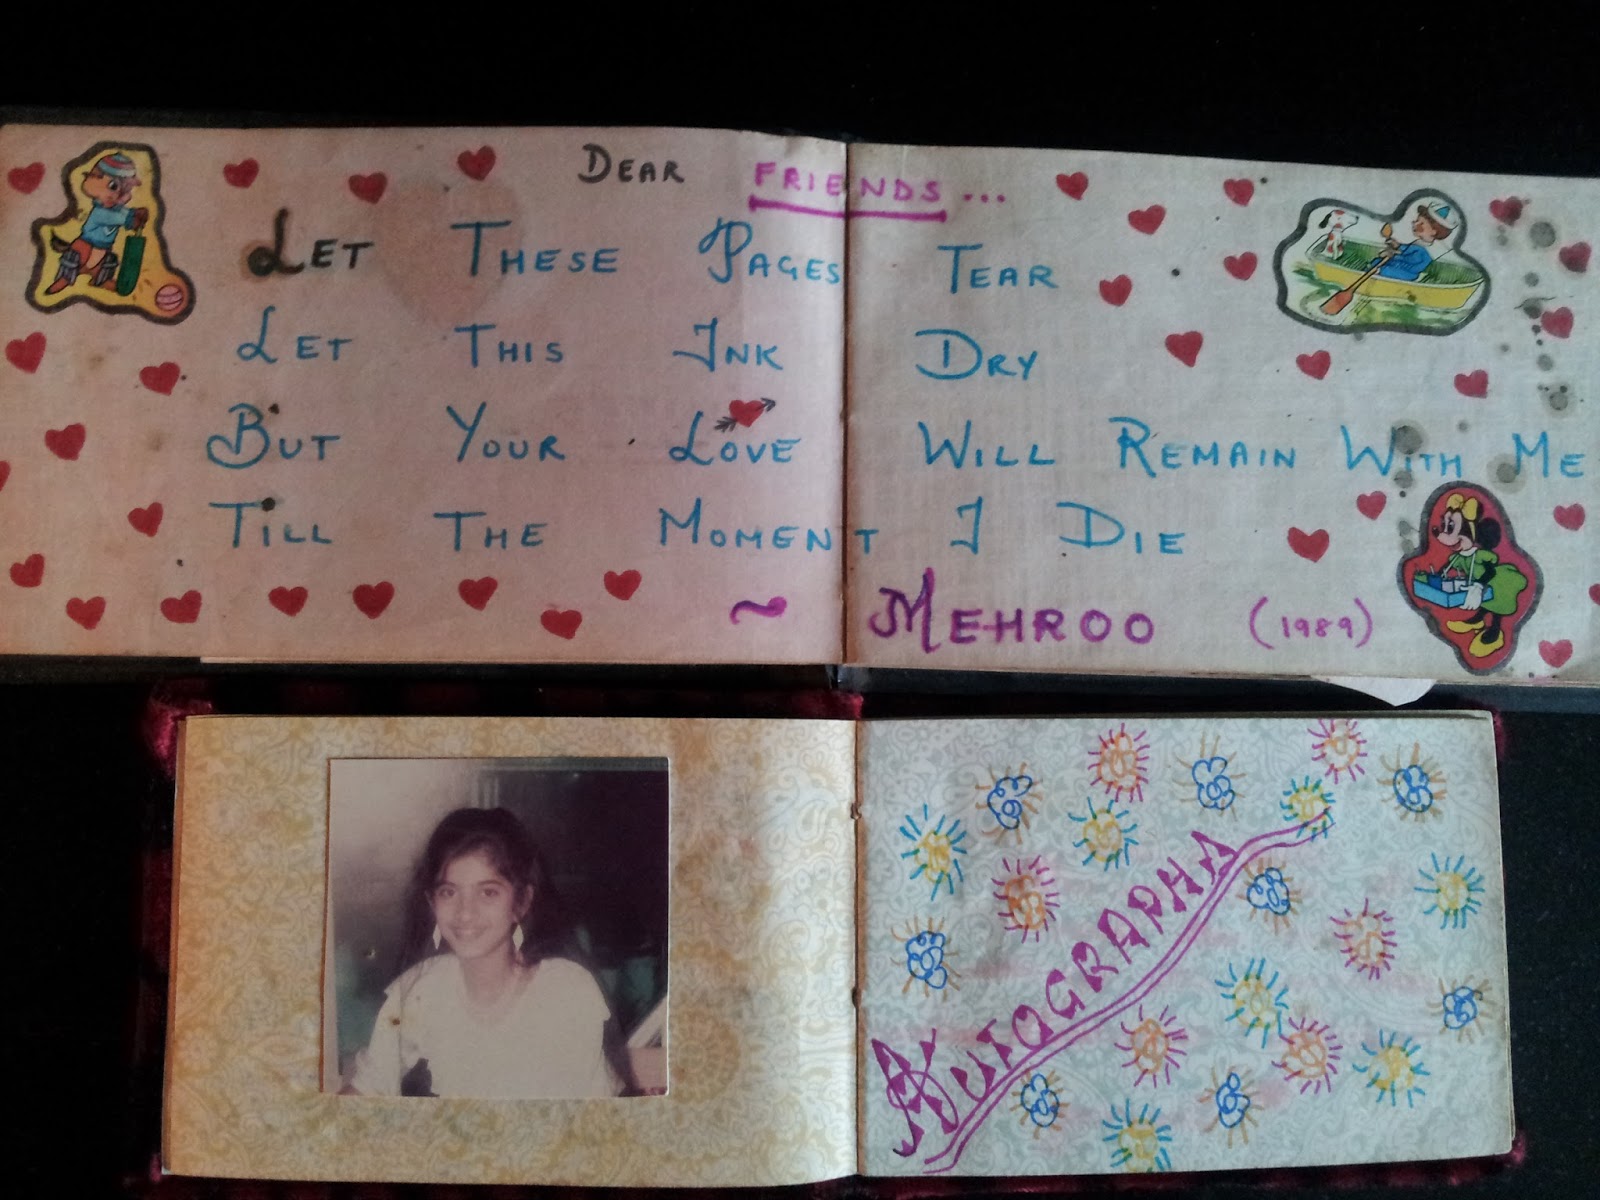 DEAR FRIENDS...
LET THESE PAGES TEAR
LET THIS INK DRY
BUT YOUR LOVE WILL REMAIN WITH ME
TILL THE MOMENT I DIE
~ MEHROO (1989)
AUTOGRAPHA